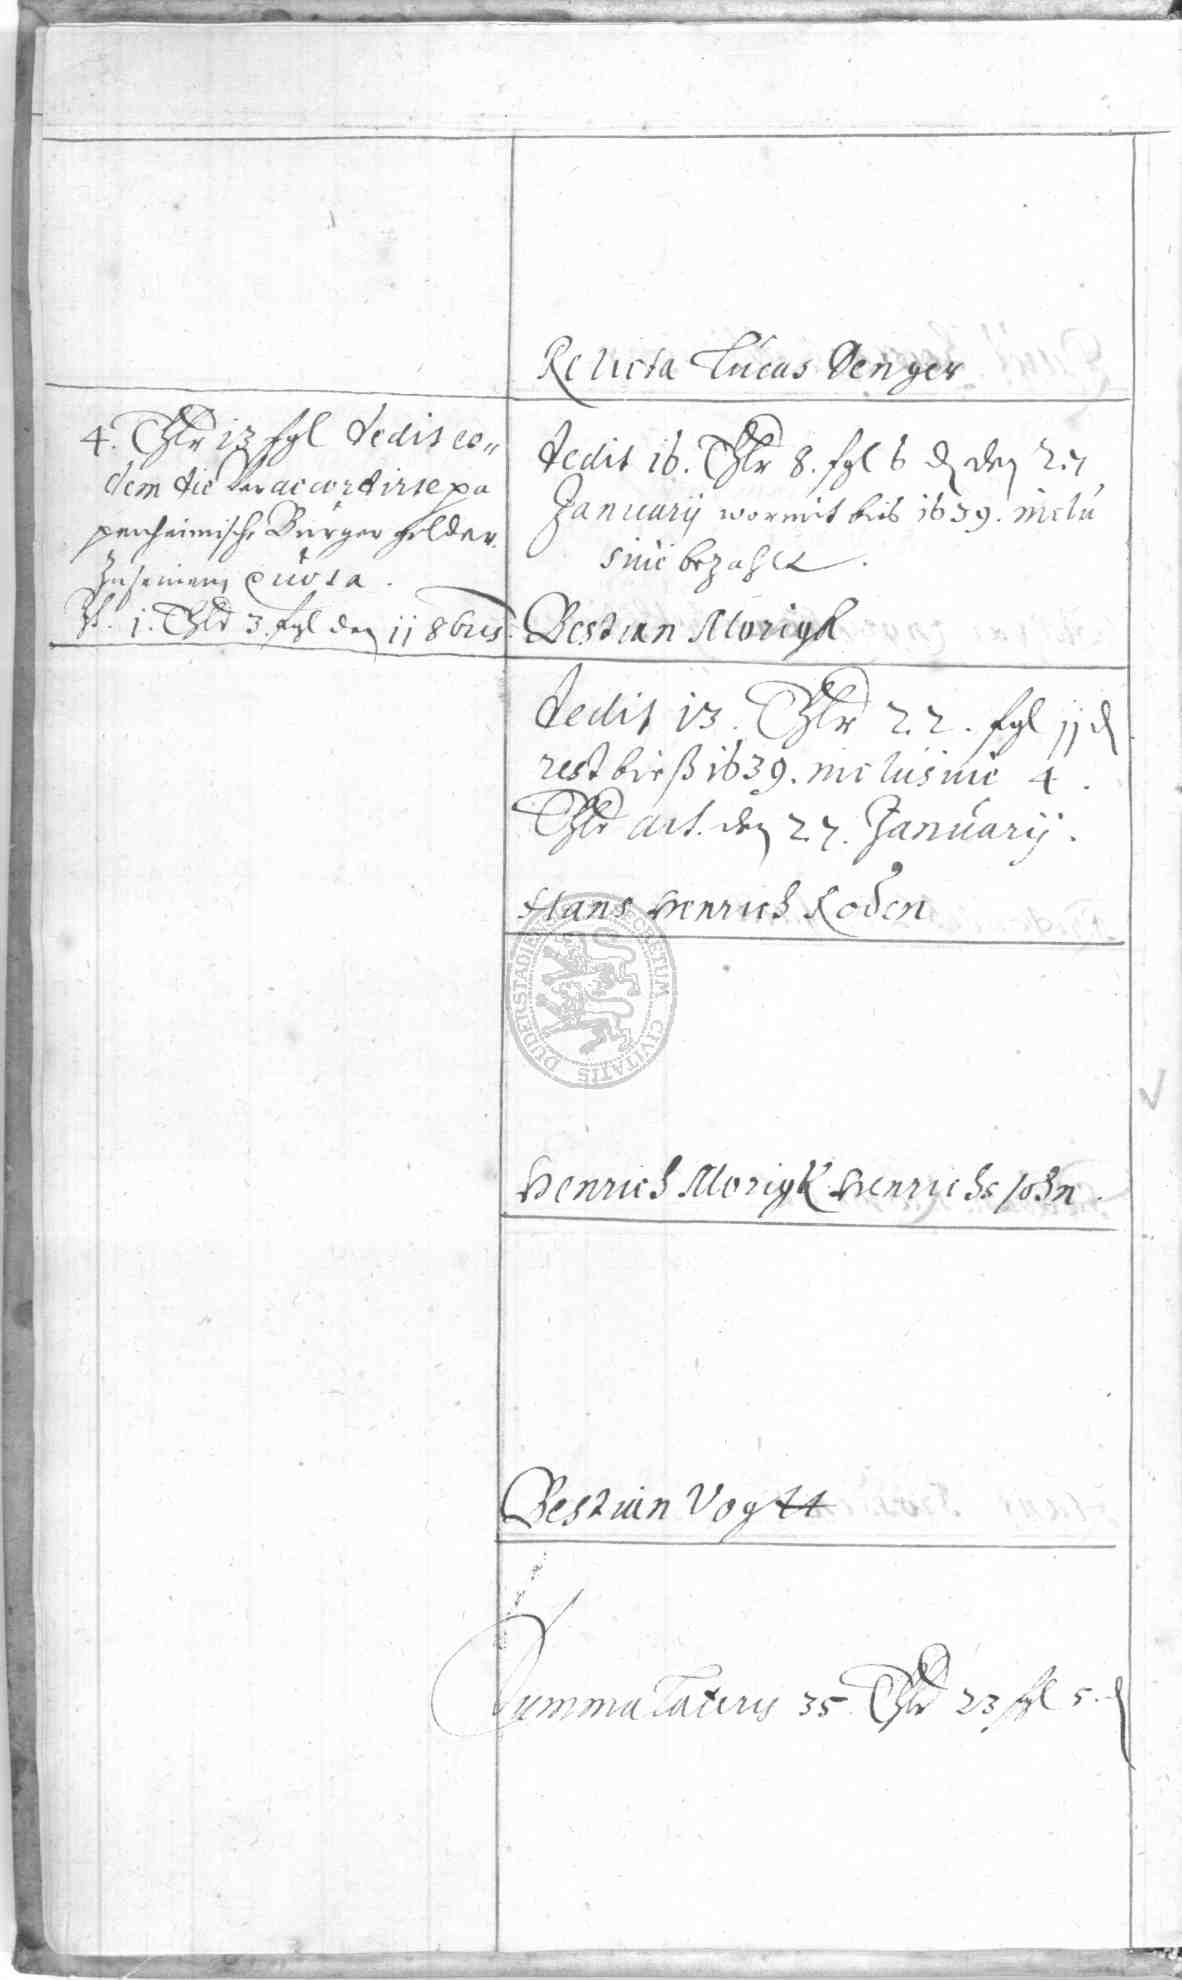 Relicta Lucas Denger
4. Thlr 13 fgl dedit eo-
dem die ver accordirte pa
penheimische Bürger gelder
Zu seinem quota.
It. 1. Thlr 3 fgl den 11 8bris.
dedit 16. Thlr 8. fgl 6 d den 27
January wormit bis 1639. inclu
sive bezahlt.
Bestian Morigk
dedit 13. Thlr 22. fgl 11 d
rest bieß 1639. inclusive 4.
Thlr act. den 27. January.
Hans Henrich Koden
SECRETUM CIVITATIS DUDERSTADIENSIS
Henrich Morigk Henrichs sohn.
Bestian Vogtt
Summa Lateris 35 Thlr 23 fgl 5. d